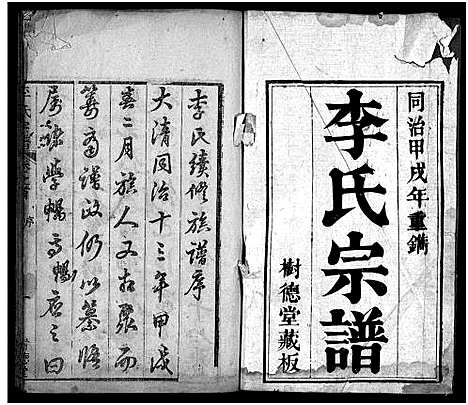 同治甲戌年重鐫
李氏宗譜
樹德堂藏板
李氏續修族譜序
大清同治十三年甲戌
春二月族人又相聚而
籌斋譜政仍以纂脩
屬諫學暢高暢應之曰